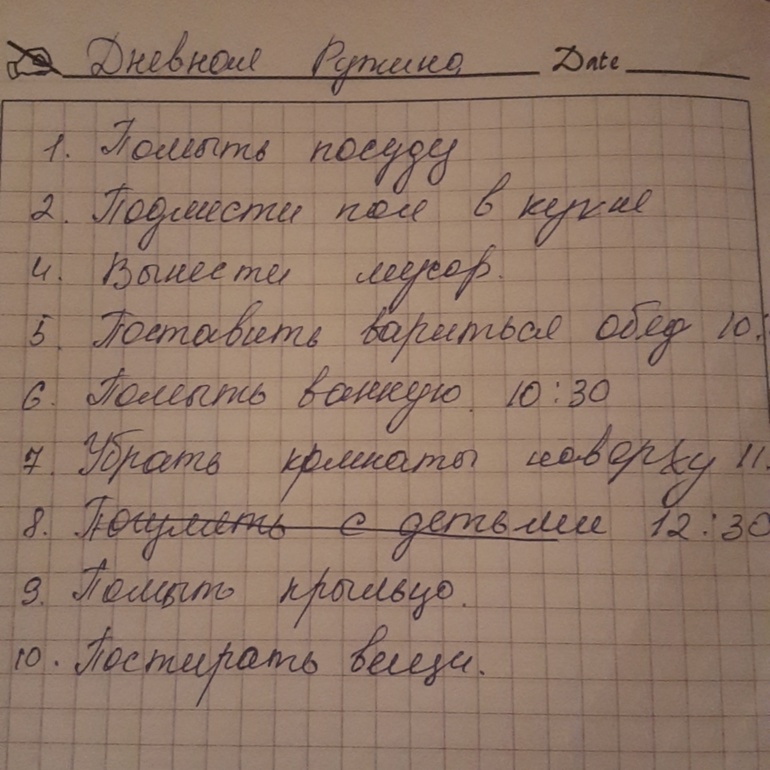 Дневная Рутина Date
1. Помыть посуду
2. Подмести пол в кухне
4. Вынести мусор.
5. Поставить вариться обед 10:
6. Помыть ванную 10:30
7. Убрать комнаты наверху 11.
8. с детьми 12:30
9. Помыть крыльцо.
10. Постирать вещи.